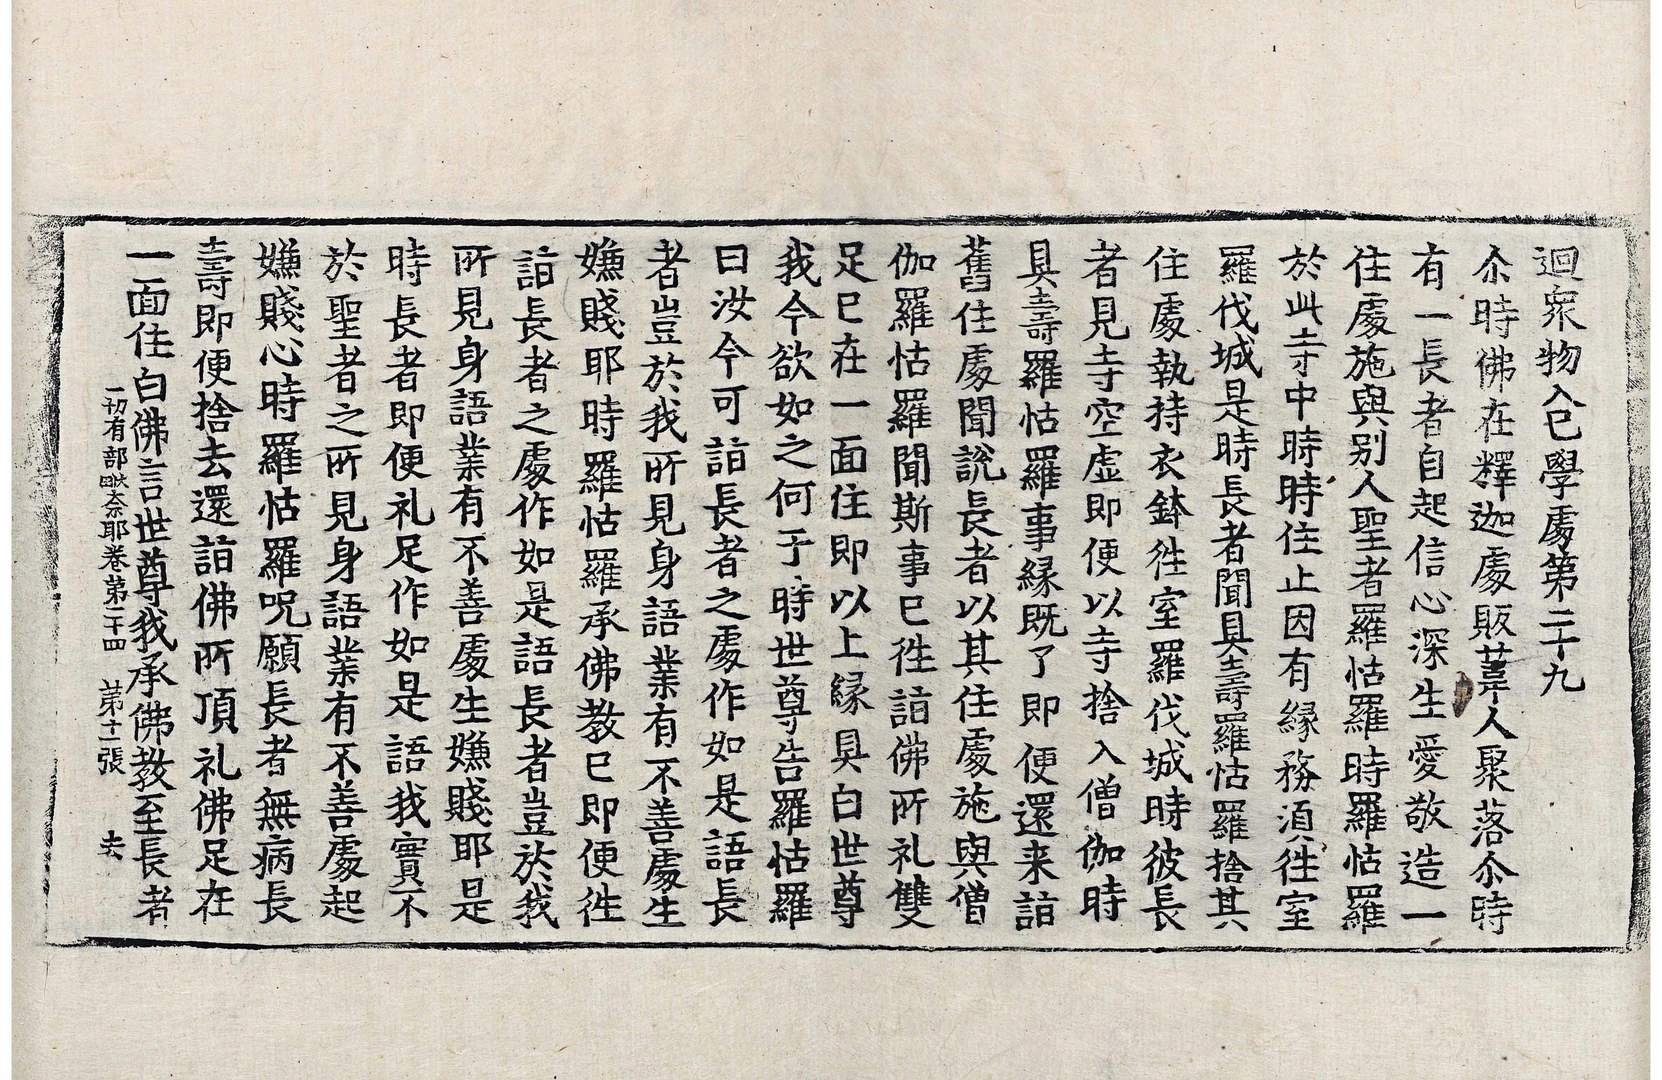 迴衆物入已學處第二十九
尒時佛在釋迦處販葦人聚落尒時
有一長者自起信心深生愛敬造一
住處施與別人聖者羅怙羅時羅怙羅
於此寺中時時住止因有緣務湏徃室
羅伐城是時長者聞具壽羅怙羅捨其
住處執持衣鉢徃室羅伐城時彼長
者見寺空虛即便以寺捨入僧伽時
具壽羅怙羅事緣既了即便還来詣
舊住處聞說長者以其住處施與僧
伽羅怙羅聞斯事已徃詣佛所礼雙
足已在一面住即以上緣具白世尊
我今欲如之何于時世尊告羅怙羅
曰汝今可詣長者之處作如是語長
者豈於我所見身語業有不善處生
嫌賤耶時羅怙羅承佛教已即便徃
詣長者之處作如是語長者豈於我
所見身語業有不善處生嫌賤耶是
時長者即便礼足作如是語我實不
於聖者之所見身語業有不善處起
嫌賤心時羅怙羅呪願長者無病長
壽即便捨去還詣佛所頂礼佛足在
一面住白佛言世尊我承佛教至長者
一切有部毗奈耶卷第二十四 第十一張 去